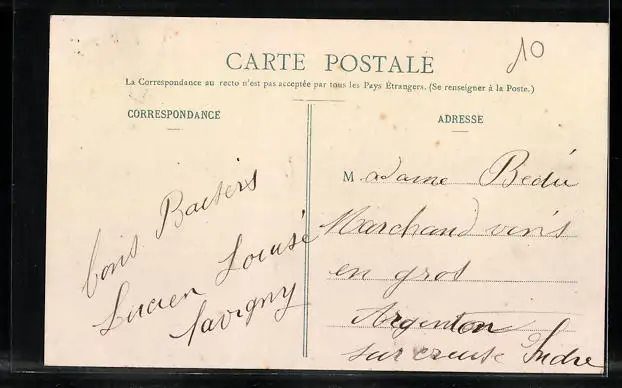 10
CARTE POSTALE
La Correspondance au recto n'est pas acceptée par tous les Pays Étrangers. (Se renseigner à la Poste.)
CORRESPONDANCE
bons Baisers
Lucien Louise
Savigny
ADRESSE
Madame Bedu
Marchand vins
en gros
Argenton
sur creuse Indre